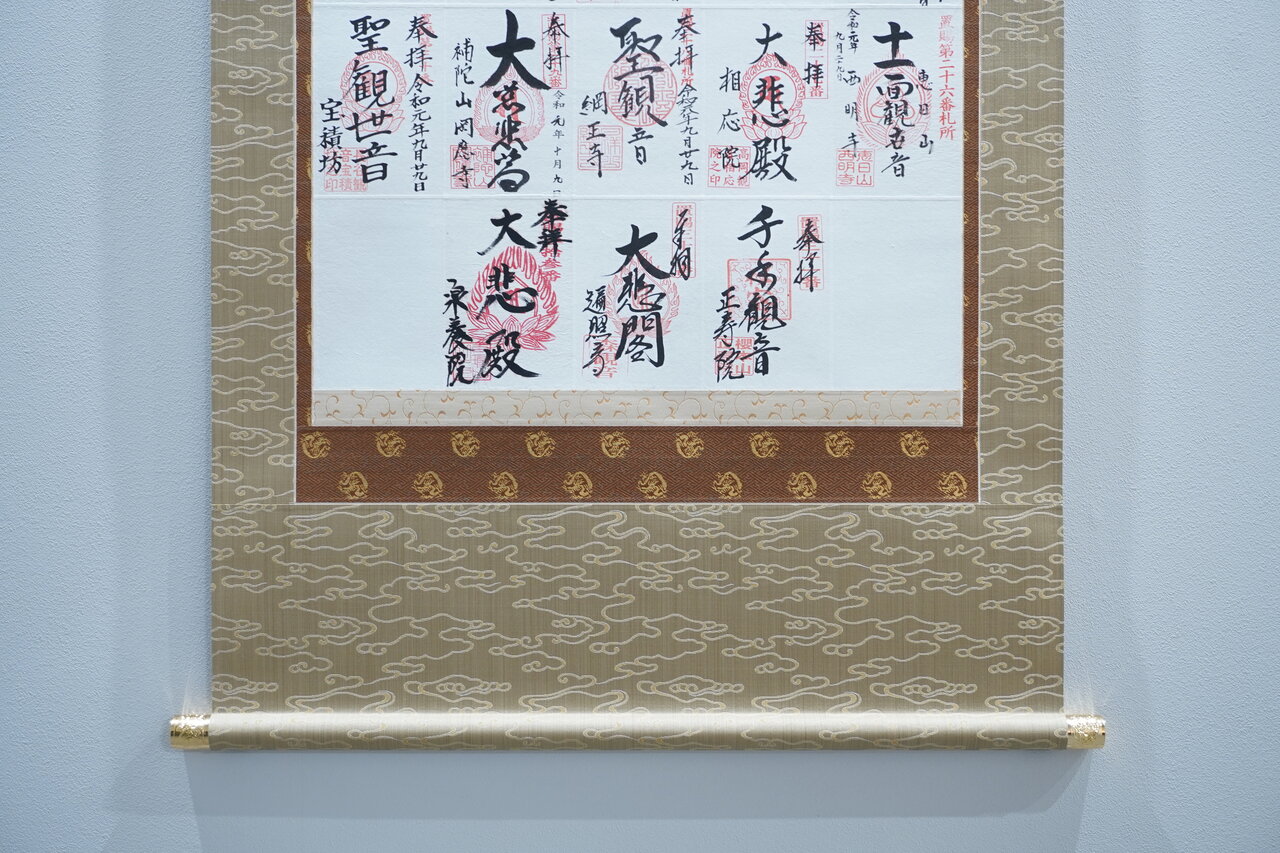 置賜第二十六番札所
恵日山
十一面観世音
令和元年
九月二十九日
西明寺
恵日山
西明寺
奉拝
大悲殿
相応院
奉拝
令和元年九月廿九日
聖観音
綱正寺
奉拝
令和元年十月九
補陀山
奉拝
令和元年九月廿九日
聖観世音
宝積坊
奉拝
千手観音
正寿院
大悲閣
遍照寺
奉拝
大悲殿
泉養院